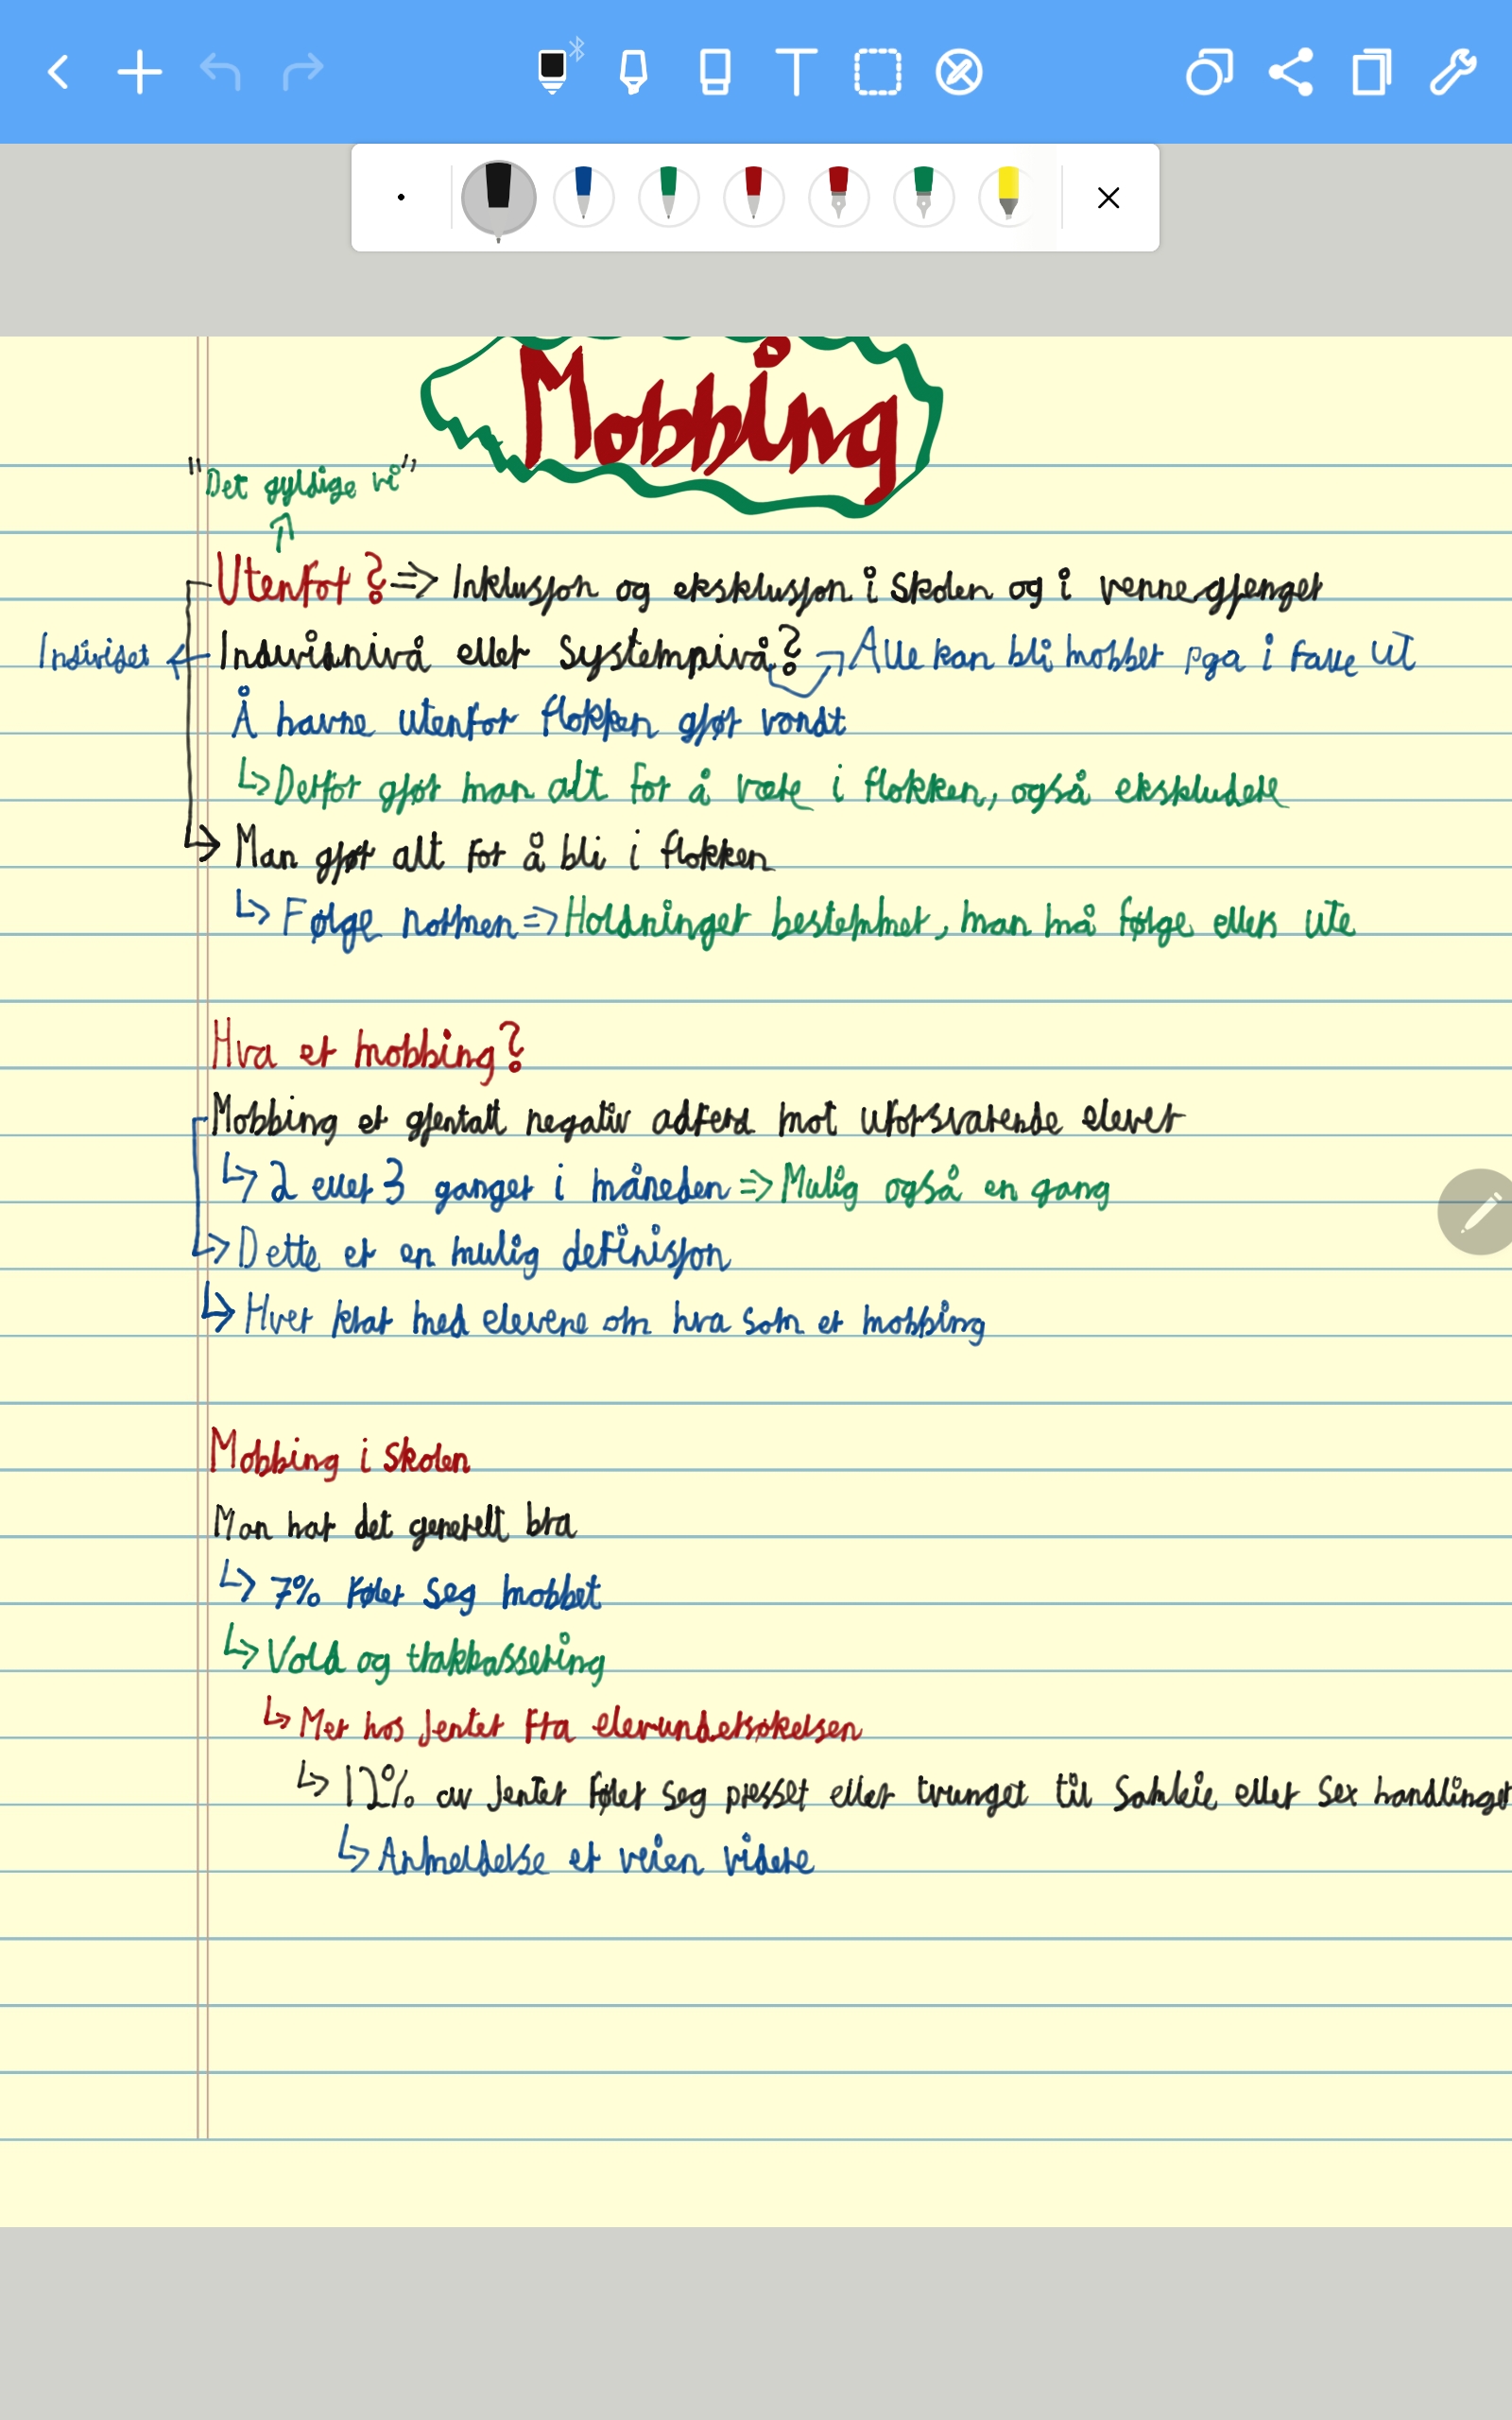 Mobbing
"Det gyldige vi"
Utenfor? => Inklusjon og eksklusjon i skolen og i vennegjenger
Individet ← Individnivå eller Systemnivå? → Alle kan bli mobbet pga i falle ut
Å havne utenfor flokken gjør vondt
↳ Derfor gjør man alt for å være i flokken, også ekskludere
→ Man gjør alt for å bli i flokken
↳ Følge normen => Holdninger bestemmer, man må følge ellers ute
Hva er mobbing?
Mobbing er gjentatt negativ adferd mot uforsvarende elever
↳ 2 eller 3 ganger i måneden => Mulig også en gang
↳ Dette er en mulig definisjon
↳ Hver krar med elevene om hva som er mobbing
Mobbing i skolen
Man har det generelt bra
↳ 7% føler seg mobbet
↳ Vold og trakkassering
↳ Mer hos jenter fra elevundersøkelsen
↳ 12% av jenter føler seg presset eller tvunget til samleie eller sex handlinger
↳ Anmeldelse er veien videre